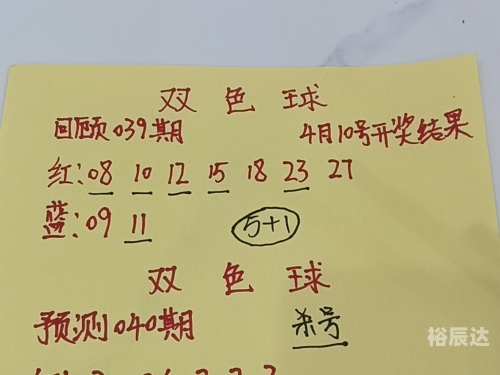 双色球
回顾039期 4月10号开奖结果
红:08 10 12 15 18 23 27
蓝:09 11 5+1
双色球
预测040期 杀号
裕辰达